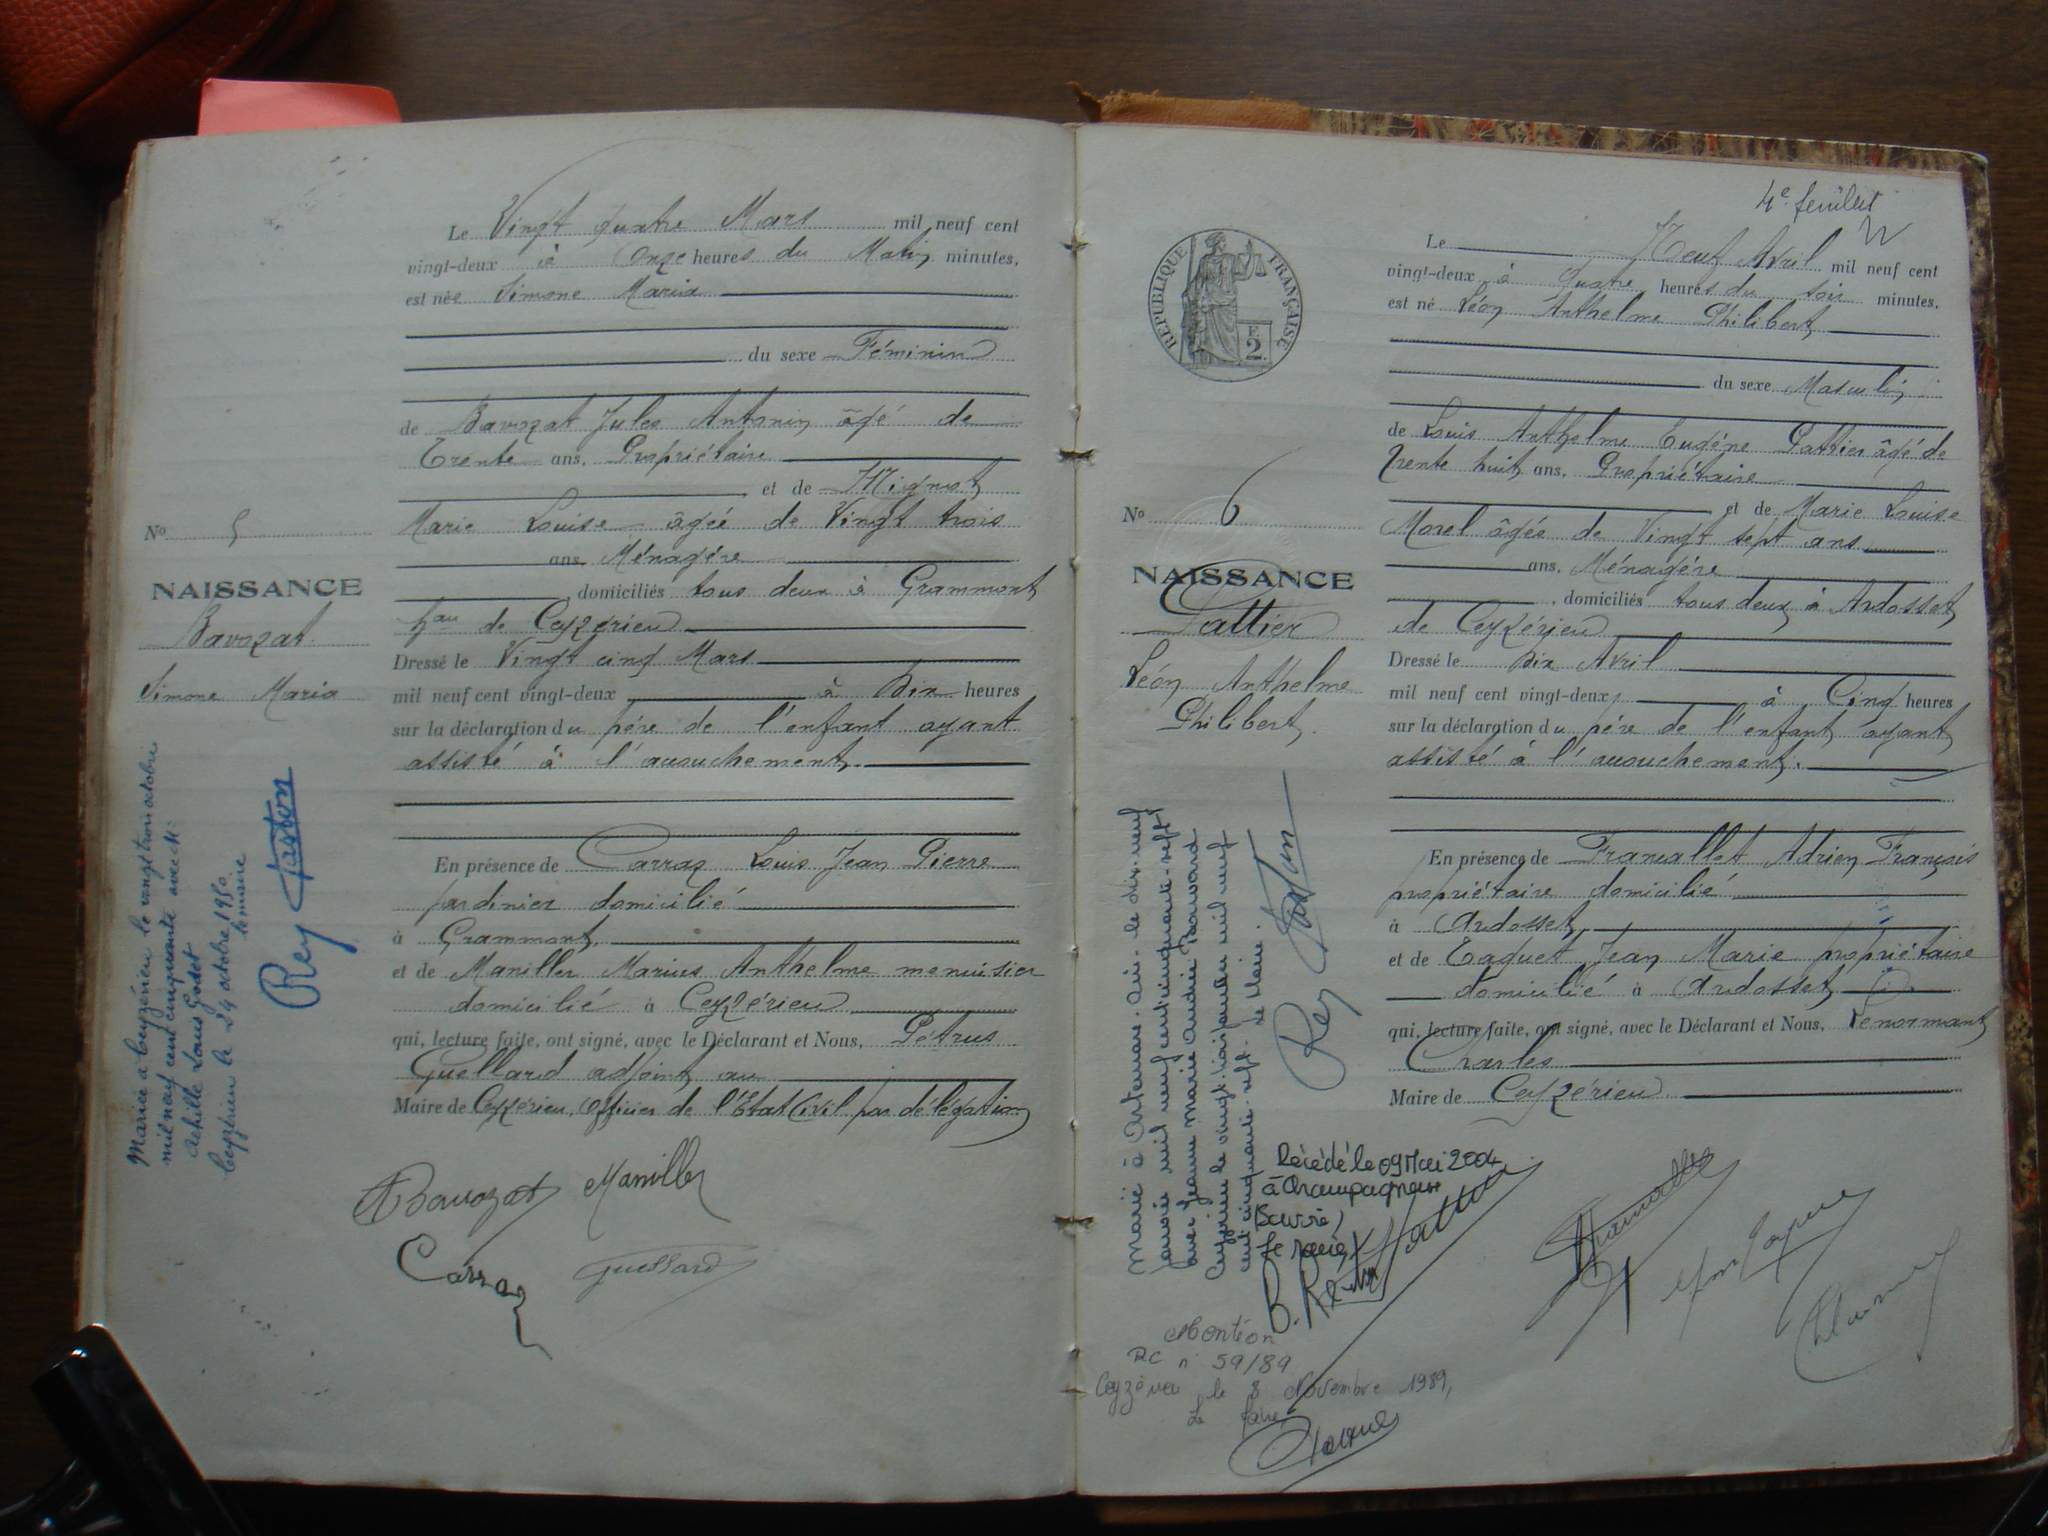 Le Vingt quatre Mars mil neuf cent
vingt-deux à Onze heures du Matin minutes,
est née Simone Maria
du sexe Féminin
de Bavozat Jules Antonin âgé de
Trente ans, Propriétaire
et de Mignot
Marie Louise âgée de Vingt trois
ans, Ménagère
, domiciliés tous deux à Grammont
hau de Ceyzérieu
Dressé le Vingt cinq Mars
mil neuf cent vingt-deux à Dix heures
sur la déclaration du père de l'enfant ayant
assisté à l'accouchement.
En présence de Carraz Louis Jean Pierre
jardinier domicilié
à Grammont,
et de Maniller Marius Anthelme menuisier
domicilié à Ceyzérieu
qui, lecture faite, ont signé, avec le Déclarant et Nous, Pétrus
Guellard adjoint au
Maire de Ceyzérieu, officier de l'Etat Civil par délégation
No 5
NAISSANCE
Bavozat
Simone Maria
Mariée à Ceyzérieu le vingt trois octobre
mil neuf cent cinquante avec M.
Achille Louis Godet
Ceyzérieu le 24 octobre 1950
le maire
Rey Gaston
Bavozat Maniller
Carraz Guellard
4e feuillet
REPUBLIQUE FRANÇAISE
F. 2.
Le Neuf Avril mil neuf cent
vingt-deux à Quatre heures du soir minutes,
est né Léon Anthelme Philibert
du sexe Masculin
de Louis Anthelme Eugène Pattier âgé de
Trente huit ans, Propriétaire
et de Marie Louise
Morel âgée de Vingt sept ans
ans, Ménagère
, domiciliés tous deux à Ardosset
de Ceyzérieu
Dressé le Dix Avril
mil neuf cent vingt-deux, à Cinq heures
sur la déclaration du père de l'enfant ayant
assisté à l'accouchement.
En présence de Francallet Adrien François
propriétaire domicilié
à Ardosset,
et de Taquet Jean Marie propriétaire
domicilié à Ardosset
qui, lecture faite, ont signé, avec le Déclarant et Nous, Penormant
Charles
Maire de Ceyzérieu
No 6
NAISSANCE
Pattier
Léon Anthelme
Philibert
Marié à Artemare, Ain, le dix-neuf
janvier mil neuf cent cinquante-sept
avec Jeanne Marie Andrée
Ceyzérieu le vingt janvier mil neuf
cent cinquante-sept. Le Maire.
Rey Gaston
Décédé le 09 Mai 2004
à Champagneux
(Savoie)
Mention
RC n° 59/89
Ceyzérieu le 8 Novembre 1989,
Le Maire,